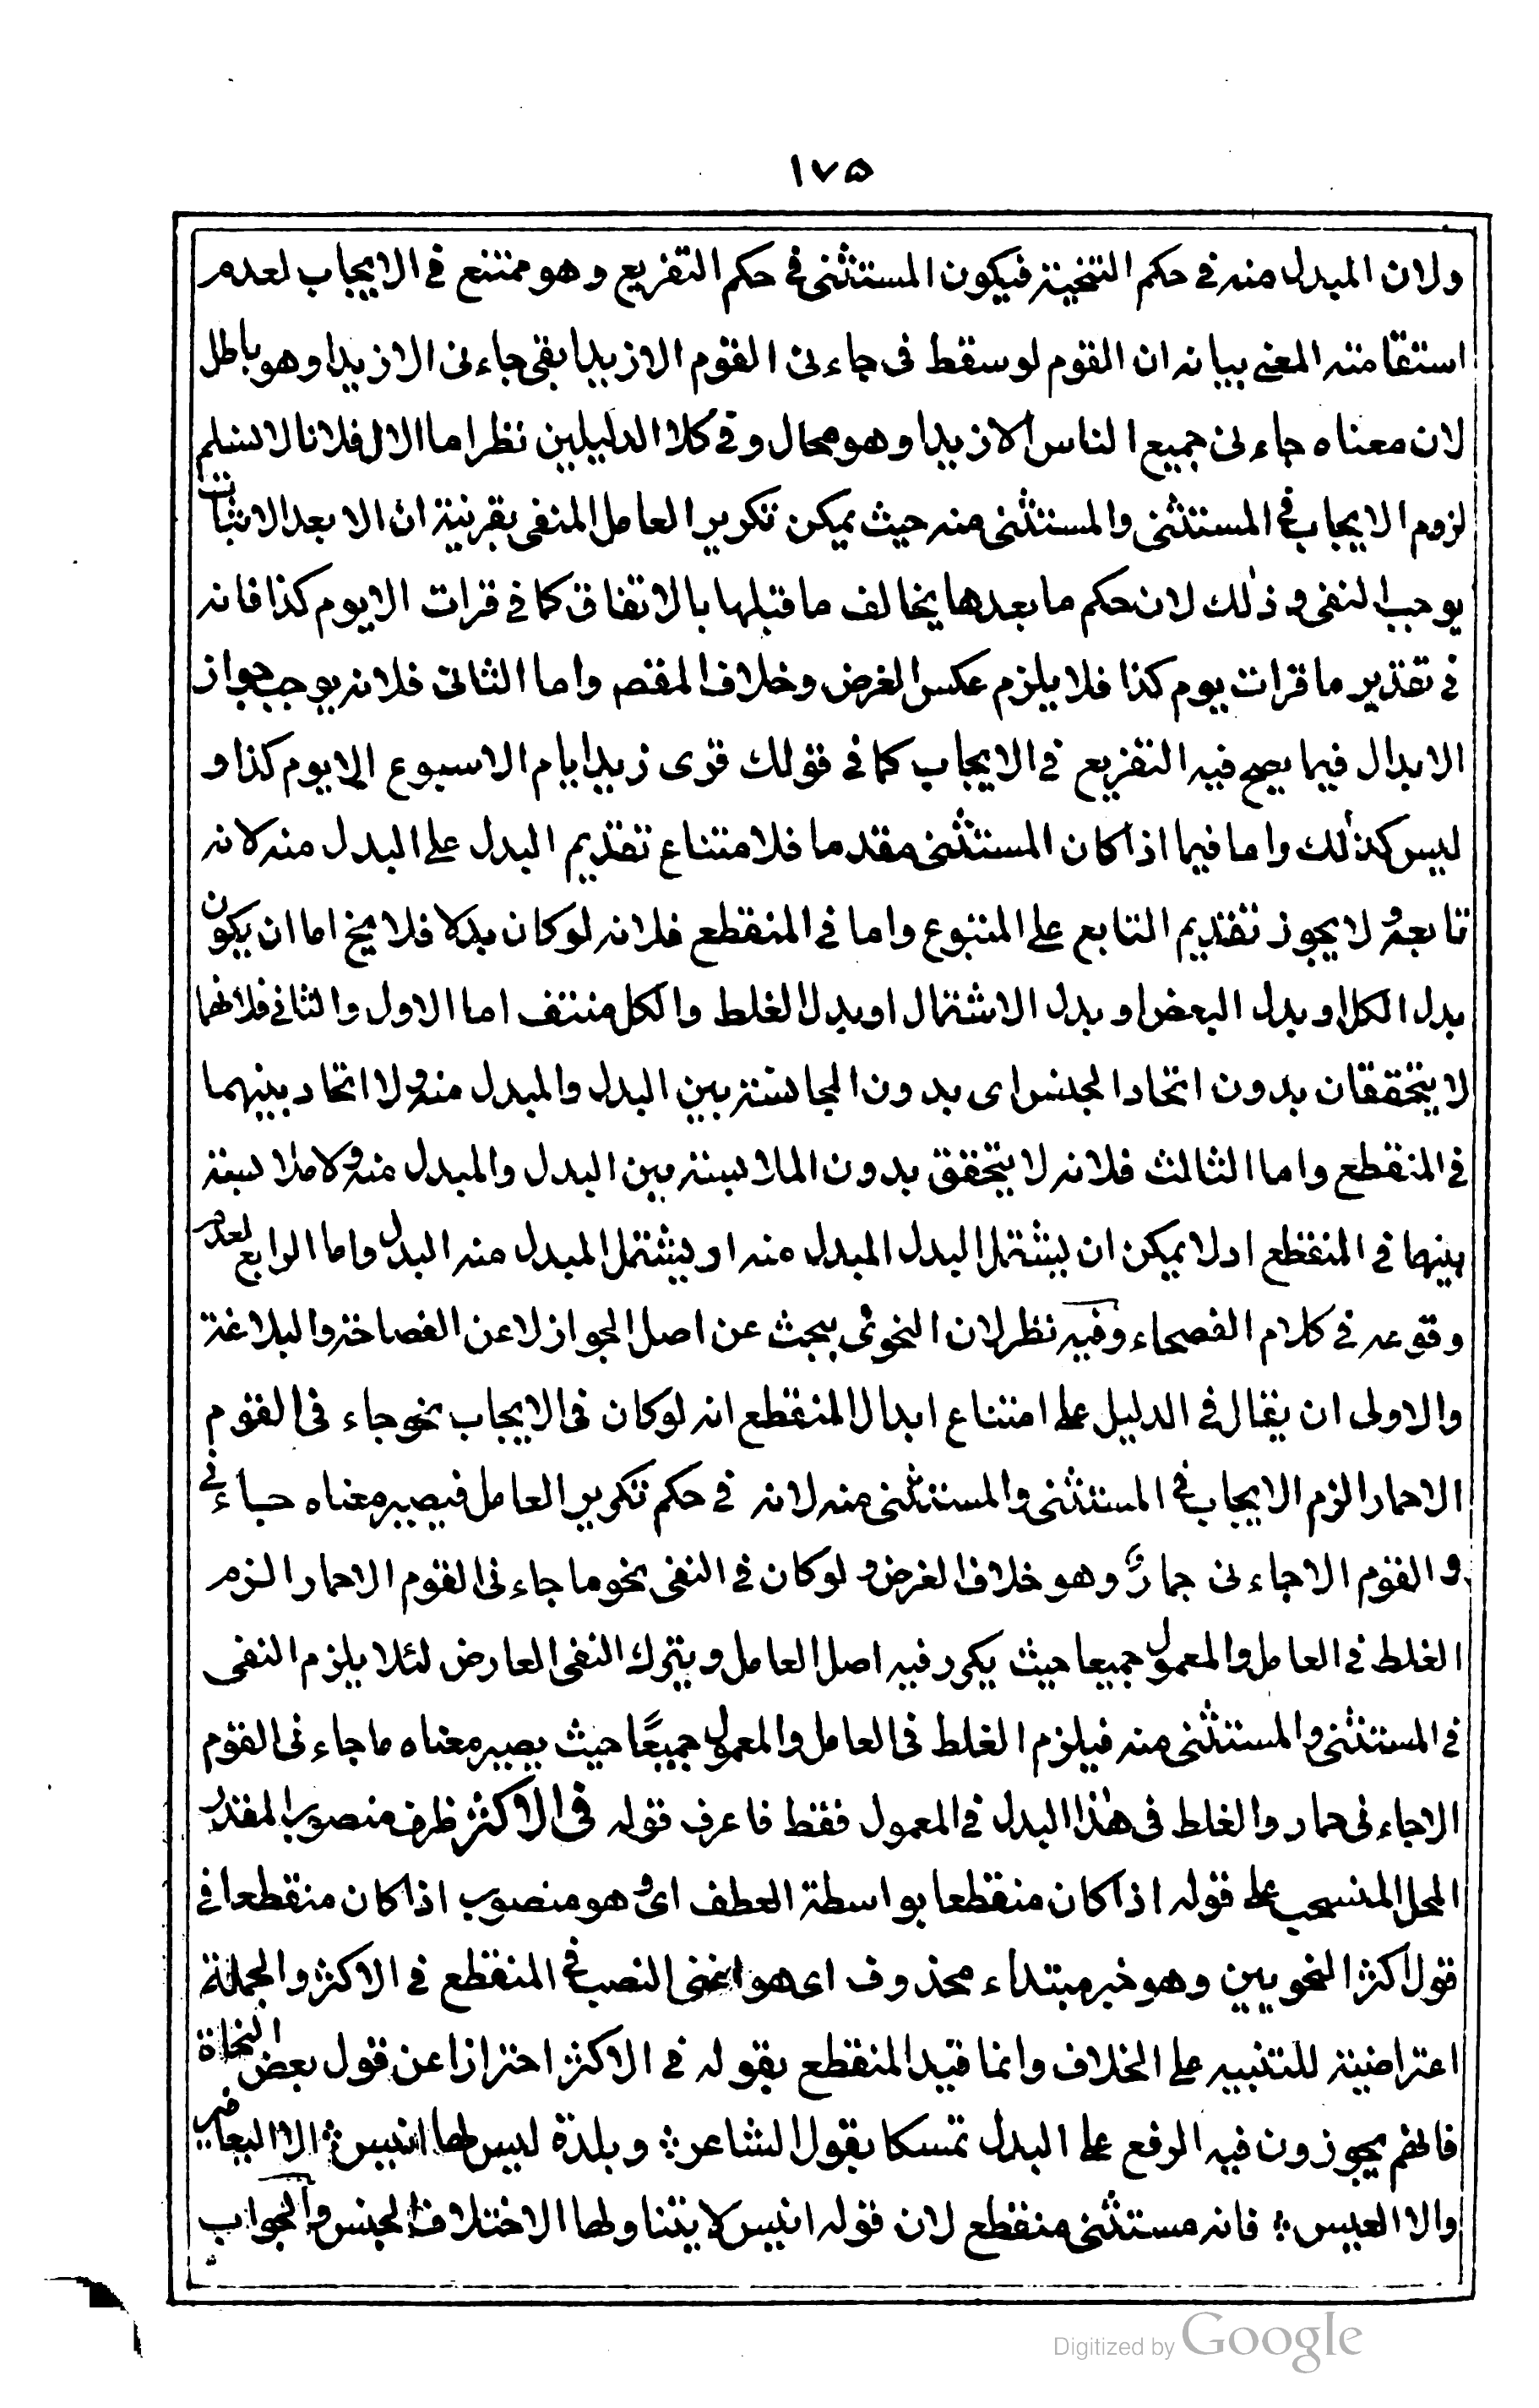 ١٧٥
ولان المبدل منه في حكم التنحية فيكون المستثنى في حكم التفريع وهو ممتنع في الايجاب لعدم
استقامته المعنى بيانه ان القوم لو سقط في جاءنى القوم الا زيدا بقى جاءنى الا زيدا وهو باطل
لان معناه جاءنى جميع الناس الا زيدا وهو محال وفى كلا الدليلين نظر اما الال فلانا لا نسلم
لزوم الايجاب في المستثنى والمستثنى منه حيث يمكن تكرير العامل المنفى بقرينة ان الا بعد الاثبات
يوجب النفى و ذلك لان حكم ما بعدها يخالف ما قبلها بالاتفاق كما في قرات الا يوم كذا فانه
في تقدير ما قرات يوم كذا فلا يلزم عكس الغرض وخلاف المقص واما الثانى فلانه يوجب جواز
الابدال فيما يصح فيه التفريع في الايجاب كما في قولك قرى زيد ايام الاسبوع الا يوم كذا و
ليس كذلك واما فيما اذا كان المستثنى مقدما فلامتناع تقديم البدل على البدل منه لانه
تابع و لا يجوز تقديم التابع على المتبوع واما في المنقطع فلانه لو كان بدلا فلا يخ اما ان يكون
بدل الكل او بدل البعض او بدل الاشتمال او بدل الغلط والكل منتف اما الاول والثانى فلانهما
لا يتحققان بدون اتحاد الجنس اى بدون المجانسة بين البدل والمبدل منه و لا اتحاد بينهما
في المنقطع واما الثالث فلانه لا يتحقق بدون الملابسة بين البدل والمبدل منه و لا ملابسة
بينهما في المنقطع اذ لا يمكن ان يشتمل البدل المبدل منه او يشتمل المبدل منه البدل واما الرابع لعدم
وقوعه في كلام الفصحاء وفيه نظر لان النحوى يبحث عن اصل الجواز لا عن الفصاحة والبلاغة
والاولى ان يقال في الدليل على امتناع ابدال المنقطع انه لو كان في الايجاب نحو جاء فى القوم
الا حمار الزم الايجاب في المستثنى والمستثنى منه لانه في حكم تكرير العامل فيصير معناه جاءنى
القوم الا جاءنى حمارٌ وهو خلاف الغرض و لو كان في النفى نحو ما جاءنى القوم الا حمار الزم
الغلط في العامل والمعمول جميعا حيث يكرر فيه اصل العامل ويترك النفى العارض لئلا يلزم النفى
في المستثنى والمستثنى منه فيلزم الغلط في العامل والمعمول جميعًا حيث يصير معناه ما جاءنى القوم
الا جاءنى حمار والغلط في هذا البدل في المعمول فقط فاعرف قوله فى الاكثر ظرف منصوب المقدر
المحل المنسحب على قوله اذا كان منقطعا بواسطة العطف اى و هو منصوب اذا كان منقطعا في
قول اكثر النحويين وهو خبر مبتداء محذوف اى هو اعنى النصب في المنقطع في الاكثر والجملة
اعتراضية للتنبيه على الخلاف وانما قيد المنقطع بقوله في الاكثر احترازا عن قول بعض النحاة
فانهم يجوزون فيه الرفع على البدل تمسكا بقول الشاعر ؞ وبلدة ليس لها انيس ؞ الا اليعافير
والا العيس ؞ فانه مستثنى منقطع لان قوله انيس لا يتناولها الاختلاف الجنس والجواب
Digitized by Google